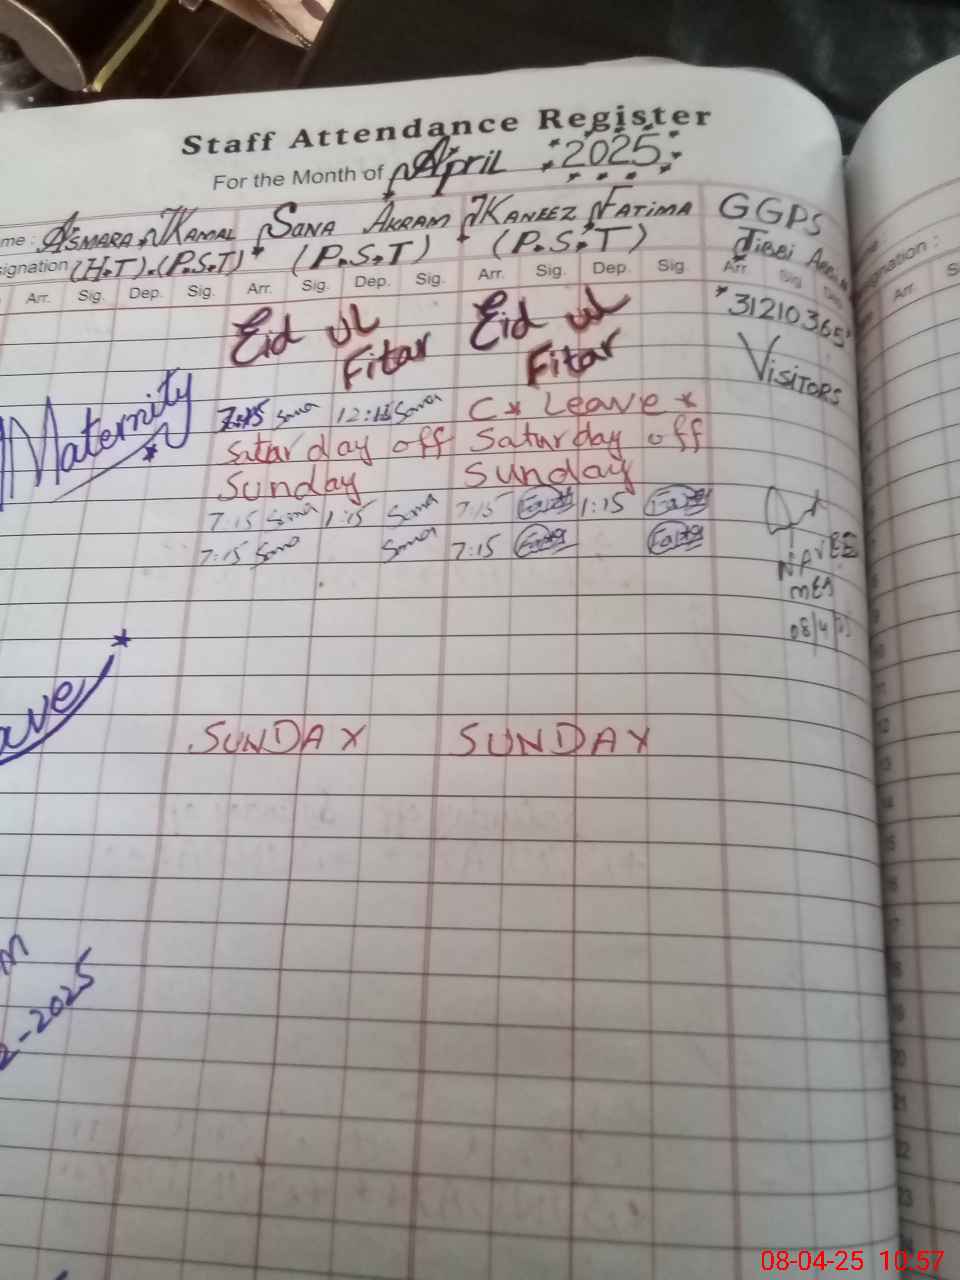 Staff Attendance Register
For the Month of April 2025
me : Asmara Kamal Sana Akram Kaneez Fatima GGPS
signation (H.T).(P.S.T) (P.S.T) (P.S.T) Jibbi
Arr. Sig. Dep. Sig. Arr. Sig. Dep. Sig. Arr. Sig. Dep. Sig. Arr. Sig. Dep.
ignation : Arr. S
31210365
Eid ul Eid ul
Fitar Fitar
VISITORS
Maternity
Sana 12:15 Sana C* Leave *
Saturday off Saturday off
Sunday Sunday
7:15 Sana 1:15 Sana 7:15 1:15
7:15 Sana Sana 7:15
08/4
ave
SUNDAY SUNDAY
-2025
08-04-25 10:57